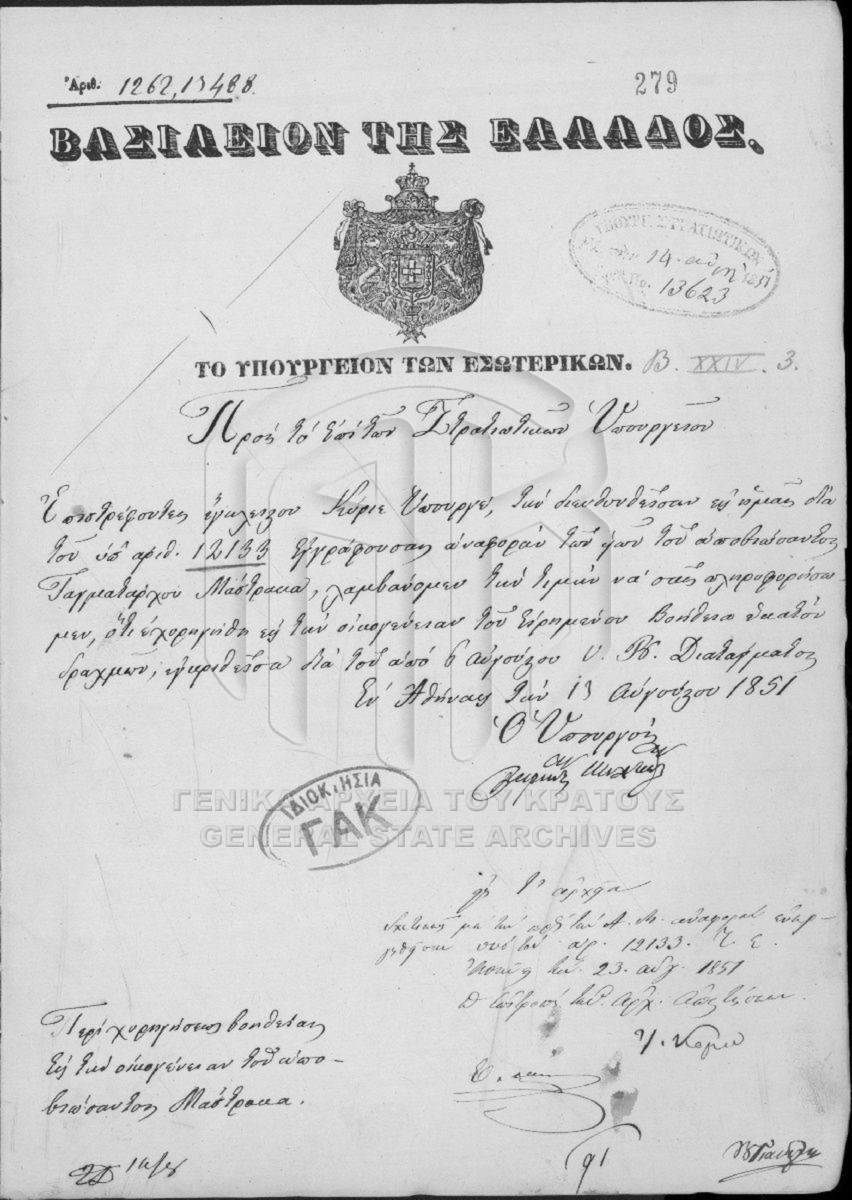 Ἀριθ. 1262, 13488.
279
ΒΑΣΙΛΕΙΟΝ ΤΗΣ ΕΛΛΑΔΟΣ.
ΥΠΟΥΡΓ. ΣΤΡΑΤΙΩΤΙΚΩΝ
14 1851
13623
ΤΟ ΥΠΟΥΡΓΕΙΟΝ ΤΩΝ ΕΣΩΤΕΡΙΚΩΝ.
B. XXIV. 3.
Πρὸς τὸ ἐπὶ τῶν Στρατιωτικῶν Ὑπουργεῖον
Ἐπιστρέφοντες ἐγκλείστον Κύριε Ὑπουργέ, τὴν διευθυνθεῖσαν εἰς ἡμᾶς διὰ
τοῦ ὑπ' ἀριθ. 12133 ἐγγράφου σας ἀναφορὰν τῶν τοῦ ἀποβιώσαντος
Ταγματάρχου Μάστρακα, λαμβάνομεν τὴν τιμὴν νὰ σᾶς πληροφορήσω-
μεν, ὅτι ἐχορηγήθη εἰς τὴν οἰκογένειαν τοῦ εἰρημένου βοήθεια ἑκατὸν
δραχμῶν, ἐγκριθεῖσα διὰ τοῦ ἀπὸ 6 Αὐγούστου Β. Διατάγματος
Ἐν Ἀθήναις τὴν 13 Αὐγούστου 1851
Ὁ Ὑπουργός
ΙΔΙΟΚΤΗΣΙΑ
ΓΑΚ
ΓΕΝΙΚΑ ΑΡΧΕΙΑ ΤΟΥ ΚΡΑΤΟΥΣ
GENERAL STATE ARCHIVES
ἀρχεῖα
μὲ τὴν ἀναφορὰν
ὑπὸ τὸν ἀρ. 12133.
τὴν 23 αὐγ. 1851
Περὶ χορηγήσεως βοηθείας
εἰς τὴν οἰκογένειαν τοῦ ἀπο-
βιώσαντος Μάστρακα.